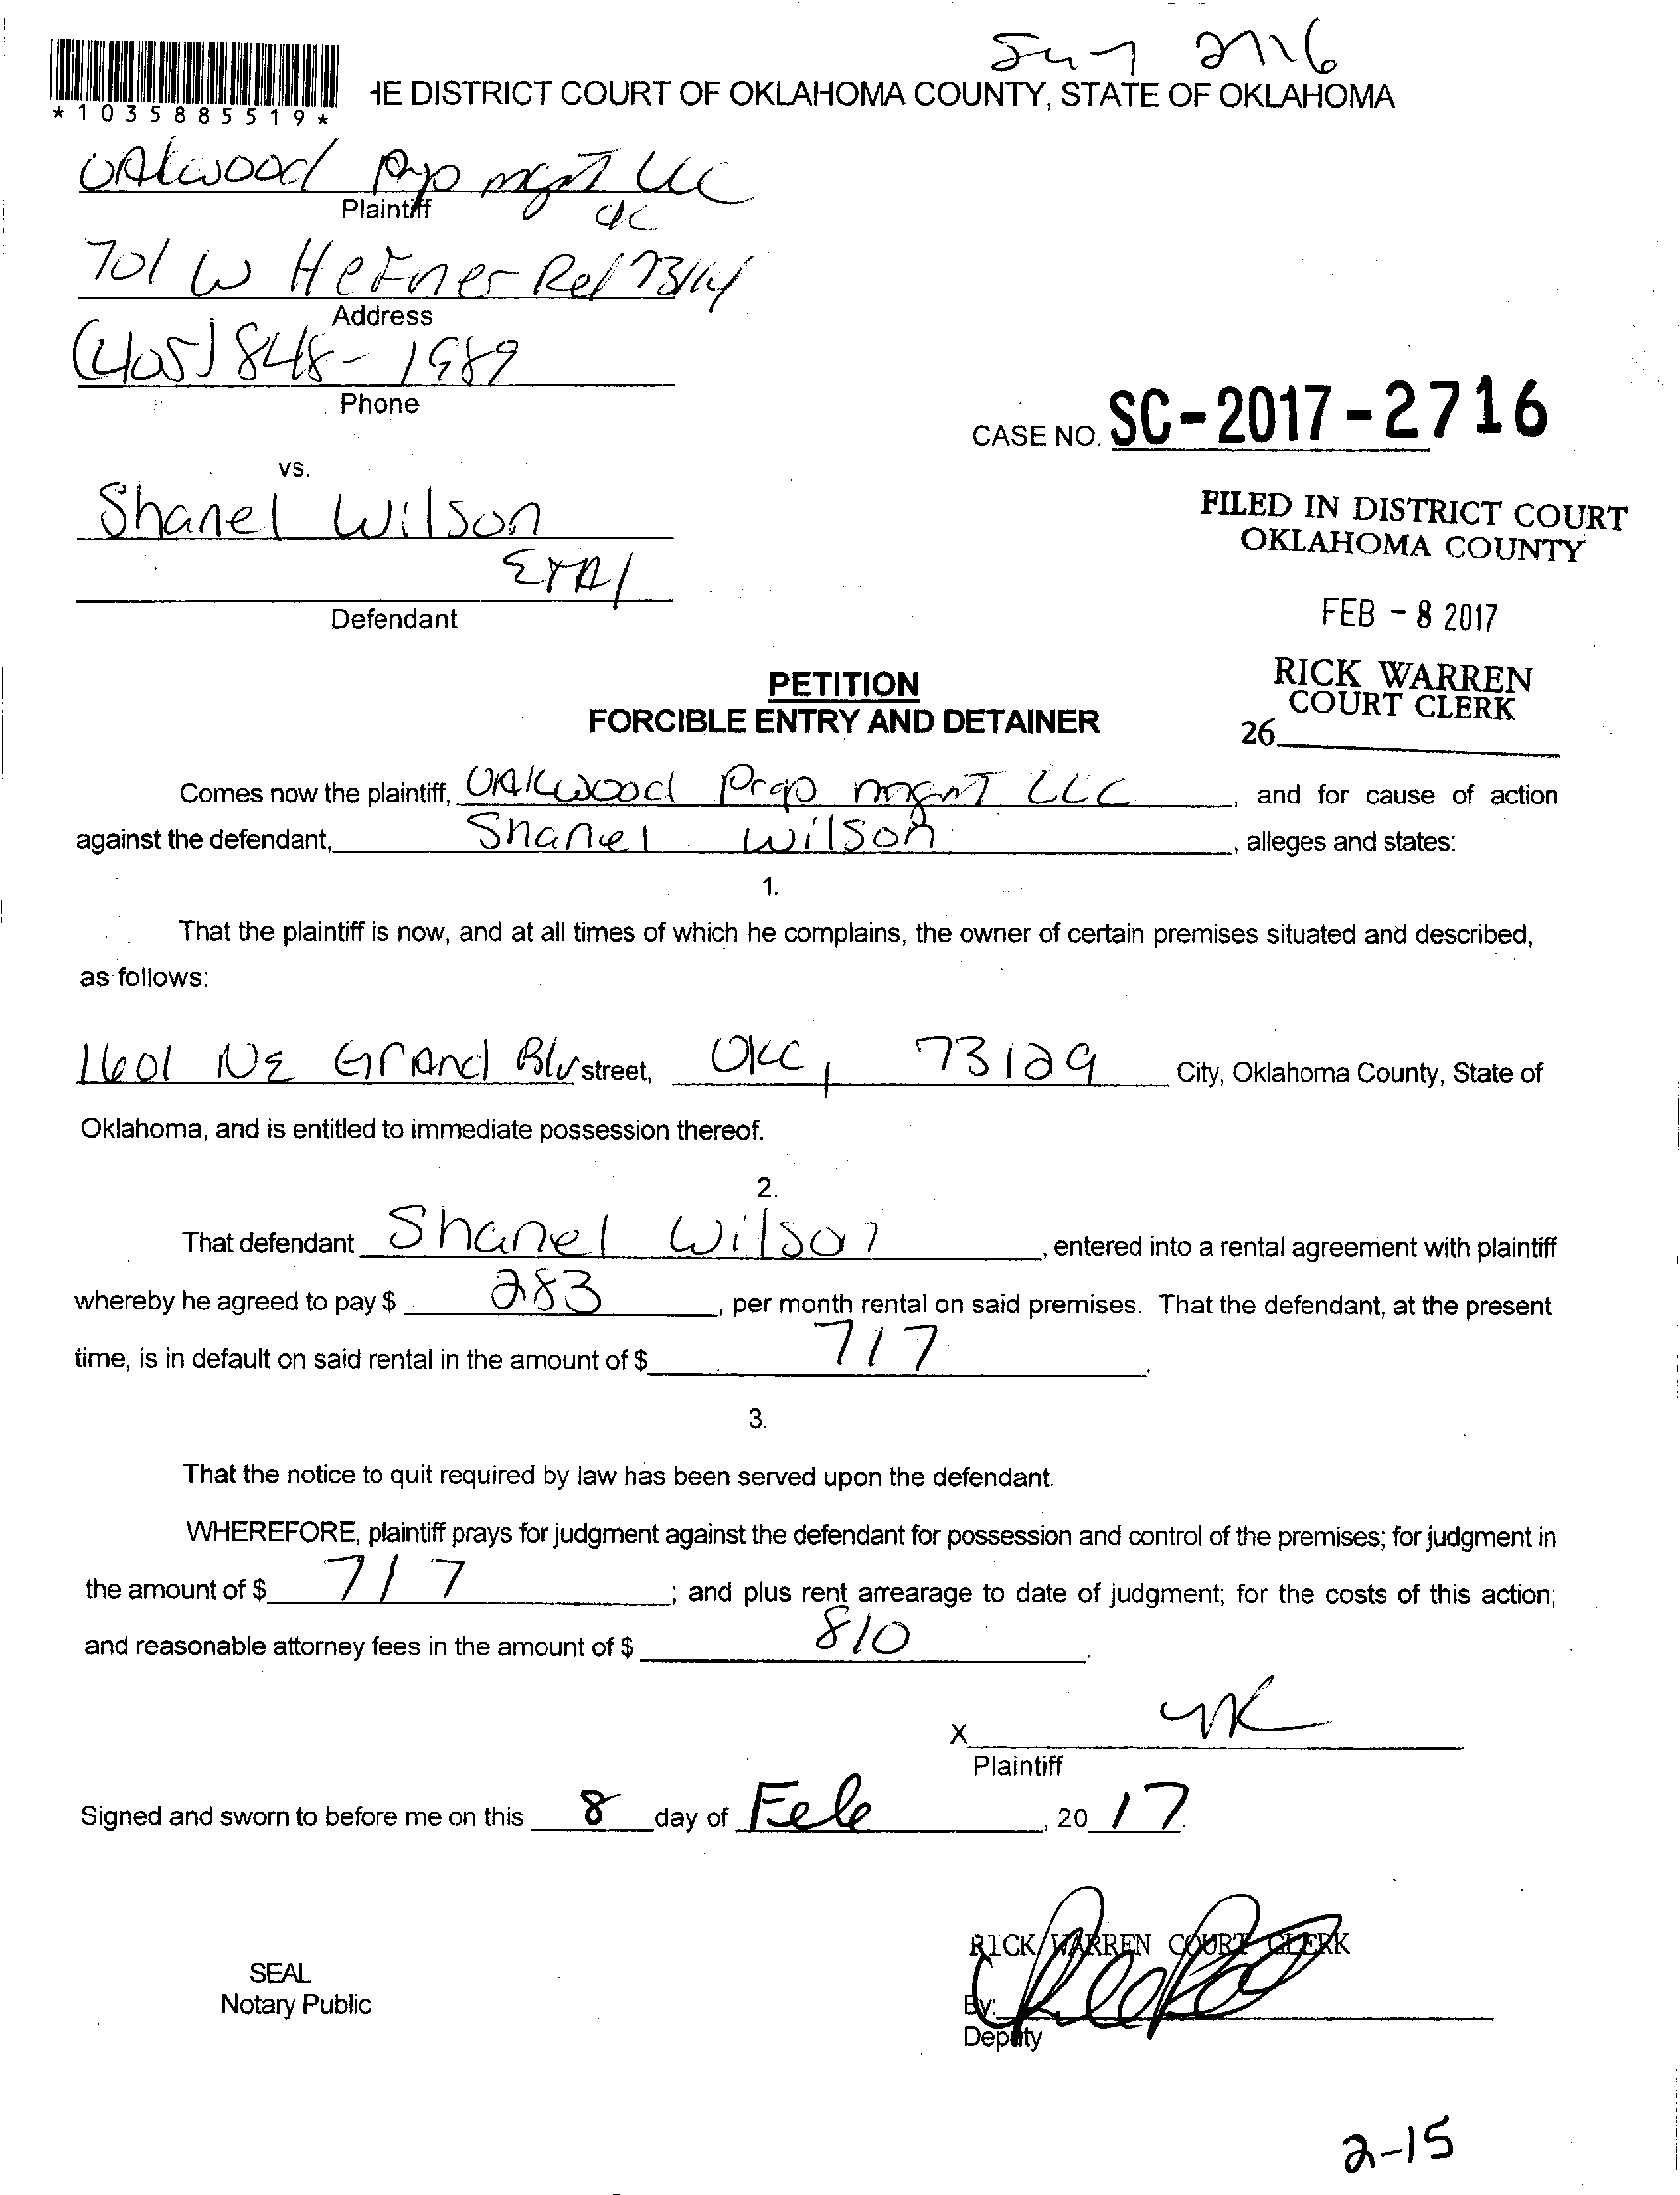 *1035885519*
HE DISTRICT COURT OF OKLAHOMA COUNTY, STATE OF OKLAHOMA
OAkwood Prp mgmT LLC
Plaintiff
701 W HeFner Rd 73114
Address
(405) 848-1989
Phone
CASE NO. SC-2017-2716
vs.
Shanel Wilson
Defendant
FILED IN DISTRICT COURT
OKLAHOMA COUNTY
FEB - 8 2017
RICK WARREN
COURT CLERK
26
PETITION
FORCIBLE ENTRY AND DETAINER
Comes now the plaintiff, OAKwood Prop mgmT LLC, and for cause of action
against the defendant, Shanel Wilson, alleges and states:
1.
That the plaintiff is now, and at all times of which he complains, the owner of certain premises situated and described,
as follows:
1601 NE Grand Blv street, OKC, 73129 City, Oklahoma County, State of
Oklahoma, and is entitled to immediate possession thereof.
2.
That defendant Shanel Wilson, entered into a rental agreement with plaintiff
whereby he agreed to pay $ 283, per month rental on said premises. That the defendant, at the present
time, is in default on said rental in the amount of $ 717.
3.
That the notice to quit required by law has been served upon the defendant.
WHEREFORE, plaintiff prays for judgment against the defendant for possession and control of the premises; for judgment in
the amount of $ 717; and plus rent arrearage to date of judgment; for the costs of this action;
and reasonable attorney fees in the amount of $ 810.
X
Plaintiff
Signed and sworn to before me on this 8 day of Feb, 20 17.
RICK WARREN COURT CLERK
SEAL
Notary Public
By:
Deputy
2-15